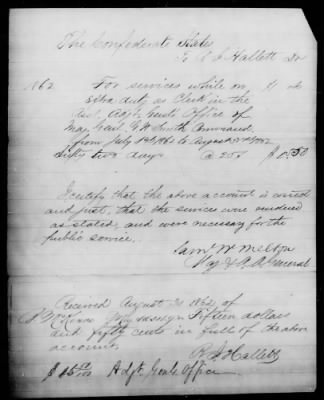 The Confederate States
To R J Hallett Dr
1862
For services while on
Extra duty as Clerk in the
Asst Adjt Genls Office of
Maj Genl G W Smith Command
from July 1st 1862 to August 31st 1862
Sixty two days @ 25¢ $ 15.50
I certify that the above account is correct
and just, that the services were rendered
as stated, and were necessary for the
public service.
Saml W Melton
Maj & A. A. General
Received August 31 1862 of
Fifteen dollars
and fifty cents in full of the above
account
R J Hallett
$ 15 50/100 Adjt Genls Office